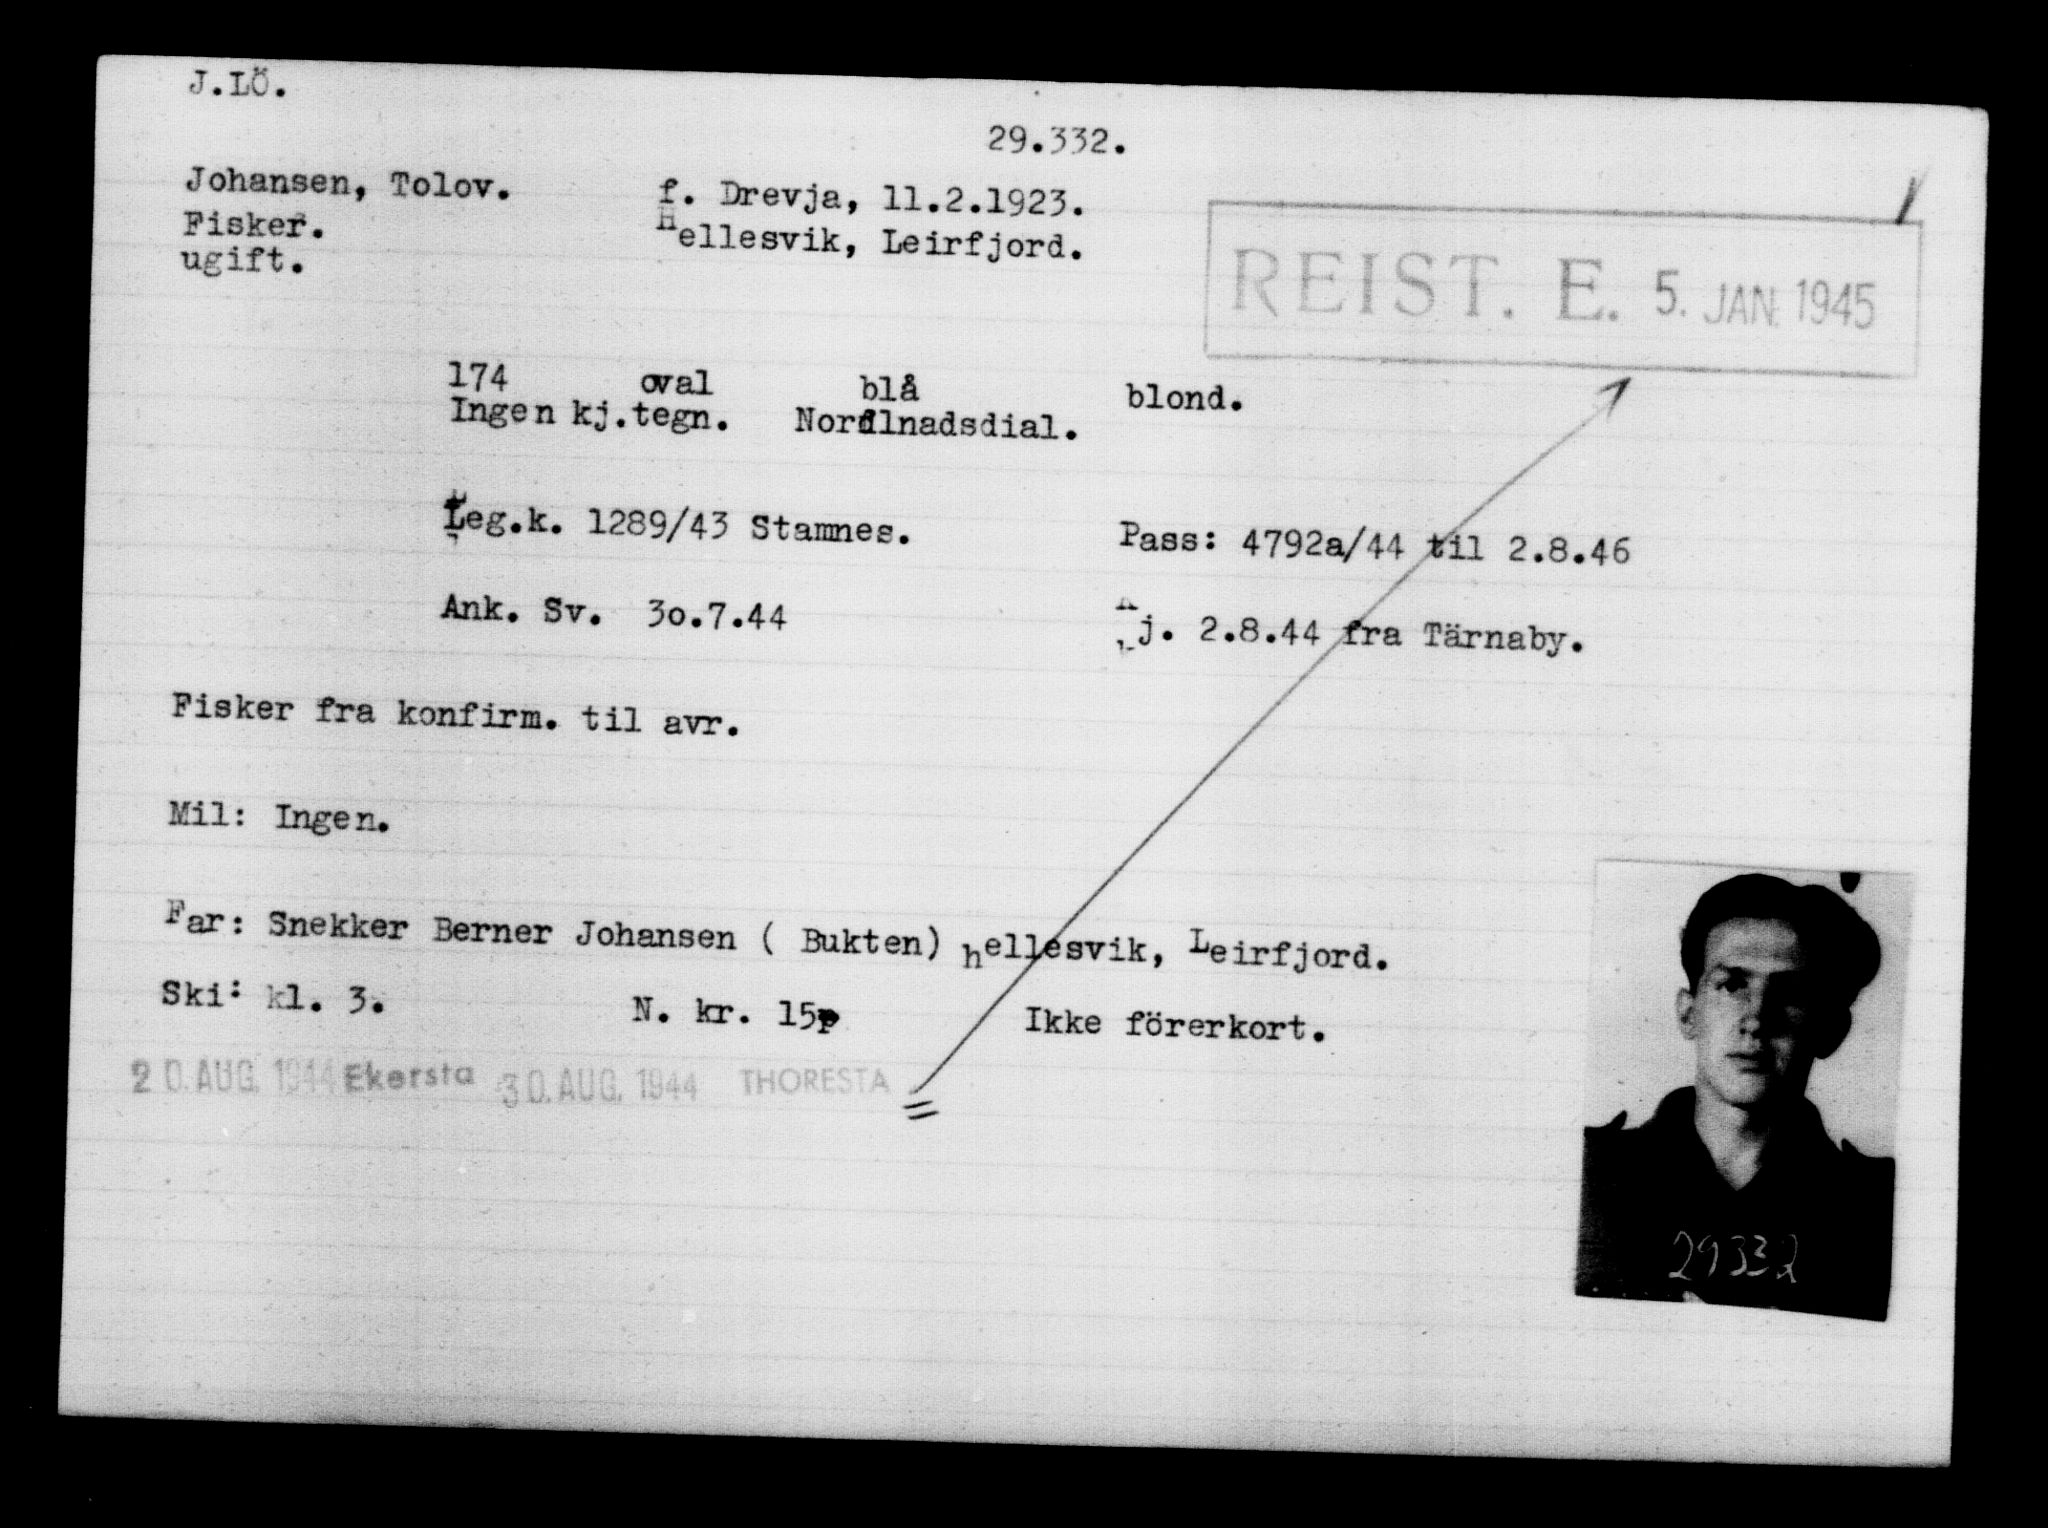 J.LÖ.
29.332.
Johansen, Tolov. f. Drevja, 11.2.1923.
Fisker. Hellesvik, Leirfjord.
ugift.
REIST. E. 5. JAN. 1945
174 oval blå blond.
Ingen kj.tegn. Nordlnadsdial.
Leg.k. 1289/43 Stamnes. Pass: 4792a/44 til 2.8.46
Ank. Sv. 3o.7.44 Kj. 2.8.44 fra Tärnaby.
Fisker fra konfirm. til avr.
Mil: Ingen.
Far: Snekker Berner Johansen ( Bukten) hellesvik, Leirfjord.
Ski: kl. 3. N. kr. 15 Ikke förerkort.
20. AUG. 1944 Ekersta 30. AUG. 1944 THORESTA
29332